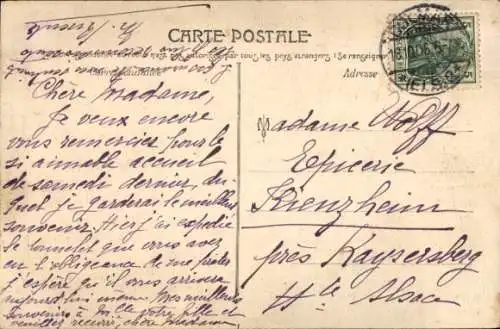 CARTE POSTALE
Tous les pays étrangers
(Se renseigner
Correspondance
Adresse
COLMAR
18.10.06.
(ELS.)
5
Chère Madame,
je veux encore
vous remercier pour le
si aimable accueil
de samedi dernier, du-
quel je garderai le meilleur
souvenir. Hier j'ai expédié
le corselet que vous avez
eu l'obligeance de me prêter
j'espère qu'il vous arrivera
aujourd'hui même. Mes meilleurs
souvenirs à Mr votre fille et
veuillez recevoir, chère Madame
Madame Wolff
Epicerie
Kienzheim
près Kaysersberg
Hte Alsace